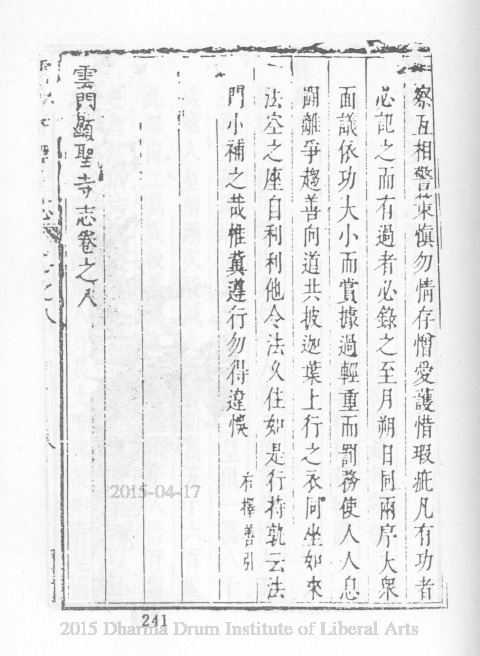 察互相警策慎勿情存憎愛護惜瑕疵凡有功者
必記之而有過者必錄之至月朔日同兩序大衆
面議依功大小而賞據過輕重而罰務使人人息
鬬離爭趨善向道共披迦葉上行之衣同坐如來
法空之座自利利他令法久住如是行持孰云法
門小補之哉惟冀遵行勿得違悞
右擇善引
雲門顯聖寺志卷之八
2015-04-17
241
2015 Dharma Drum Institute of Liberal Arts